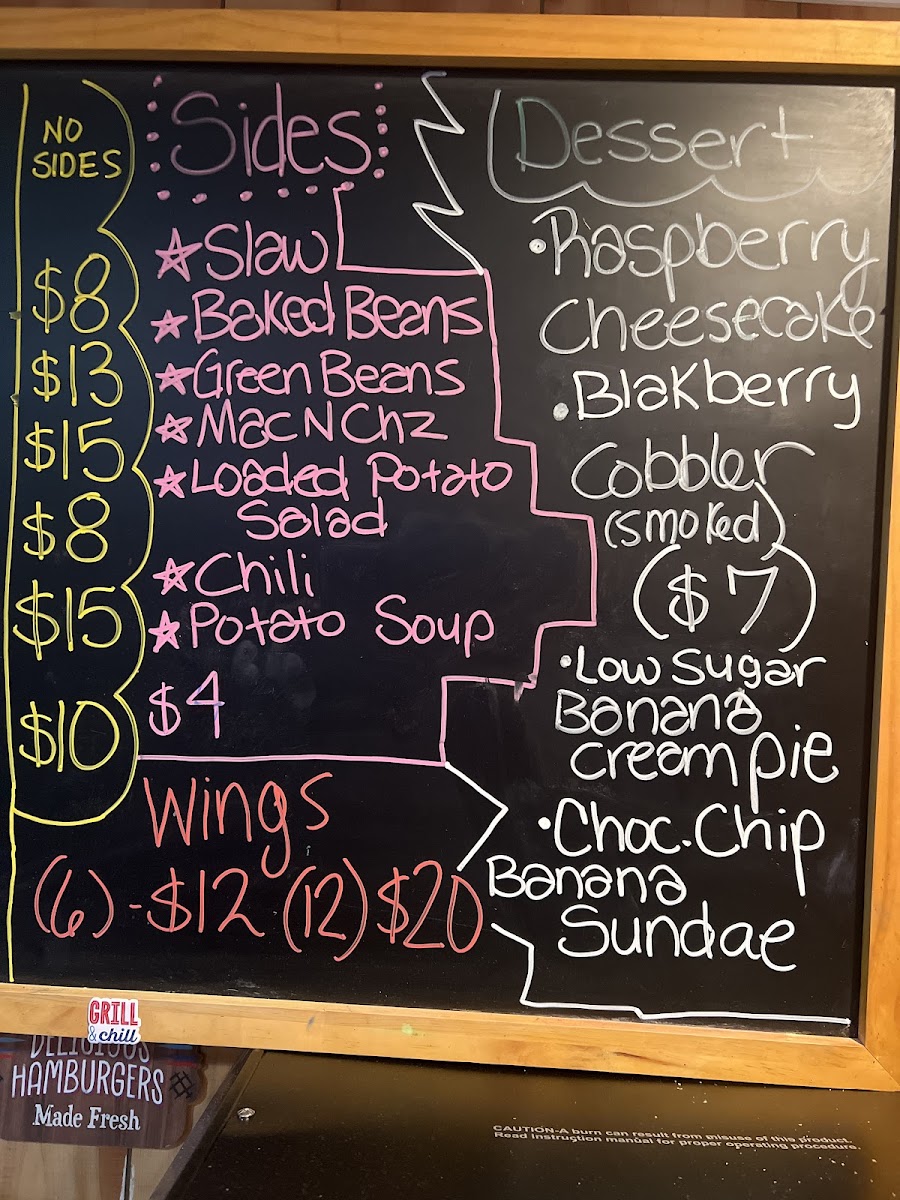 NO
SIDES
$8
$13
$15
$8
$15
$10
Sides
Slaw
Baked Beans
Green Beans
Mac N Chz
Loaded Potato
Salad
Chili
Potato Soup
$4
Wings
(6) - $12 (12) $20
Dessert
• Raspberry
Cheesecake
• Blakberry
Cobbler
(smoked)
($7)
• Low Sugar
Banana
cream pie
• Choc. Chip
Banana
Sundae
GRILL
& chill
DELICIOUS
HAMBURGERS
Made Fresh
CAUTION-A burn can result from misuse of this product.
Read instruction manual for proper operating procedure.